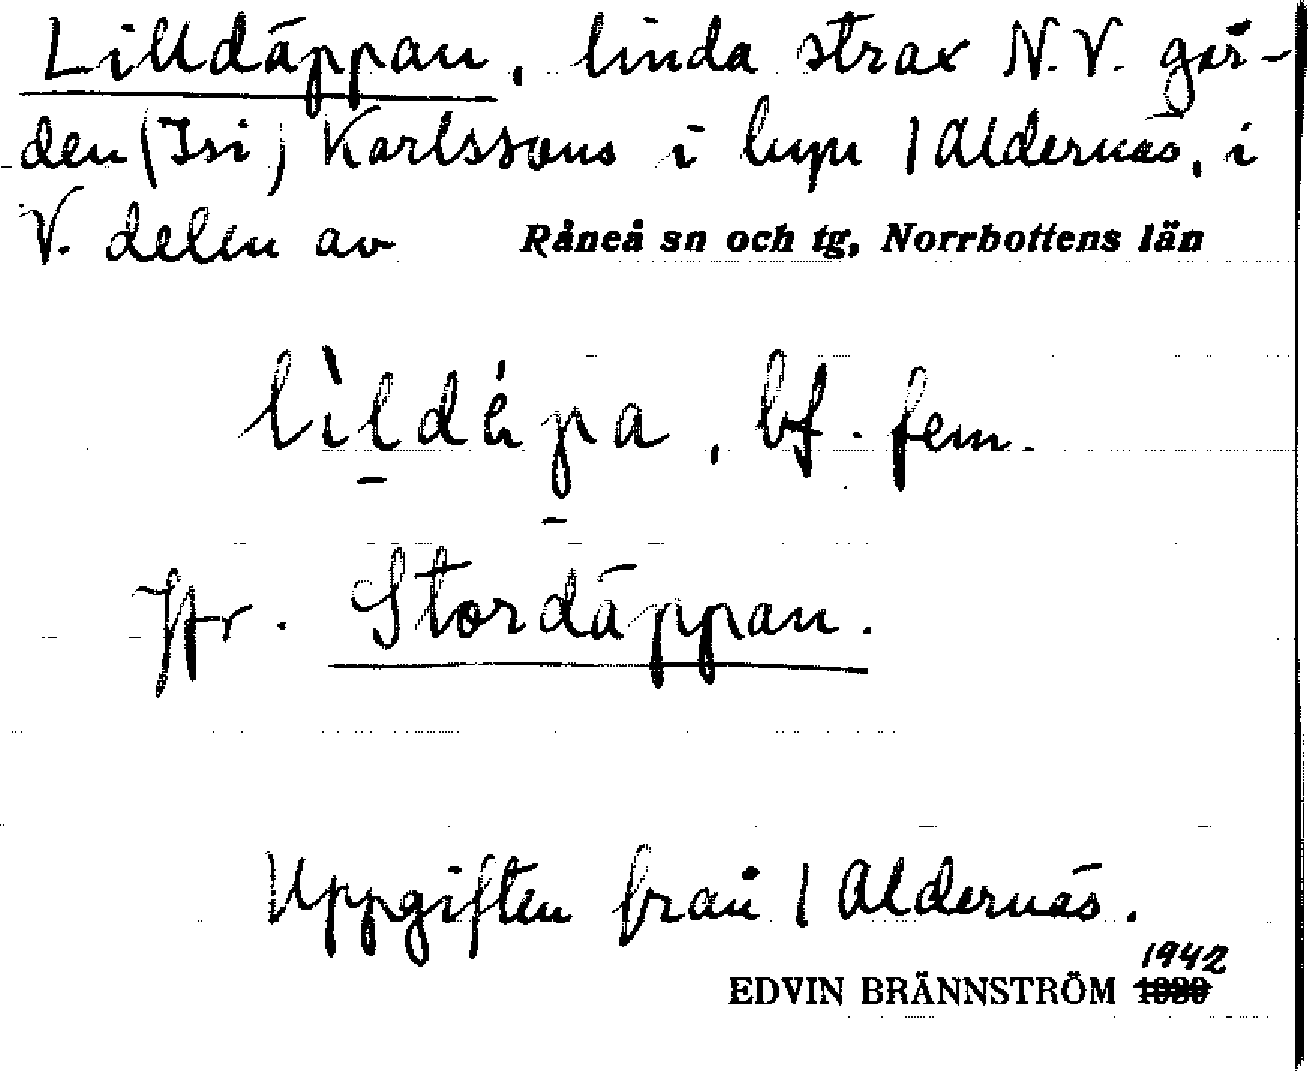 Lilldäppan, linda strax N.V. går-
den (Isi) Karlssons i byn 1 Aldernäs, i
V. delen av Råneå sn och tg, Norrbottens län
bf. fem.
Jfr. Stordäppan.
Uppgiften från 1 Aldernäs.
1942
EDVIN BRÄNNSTRÖM